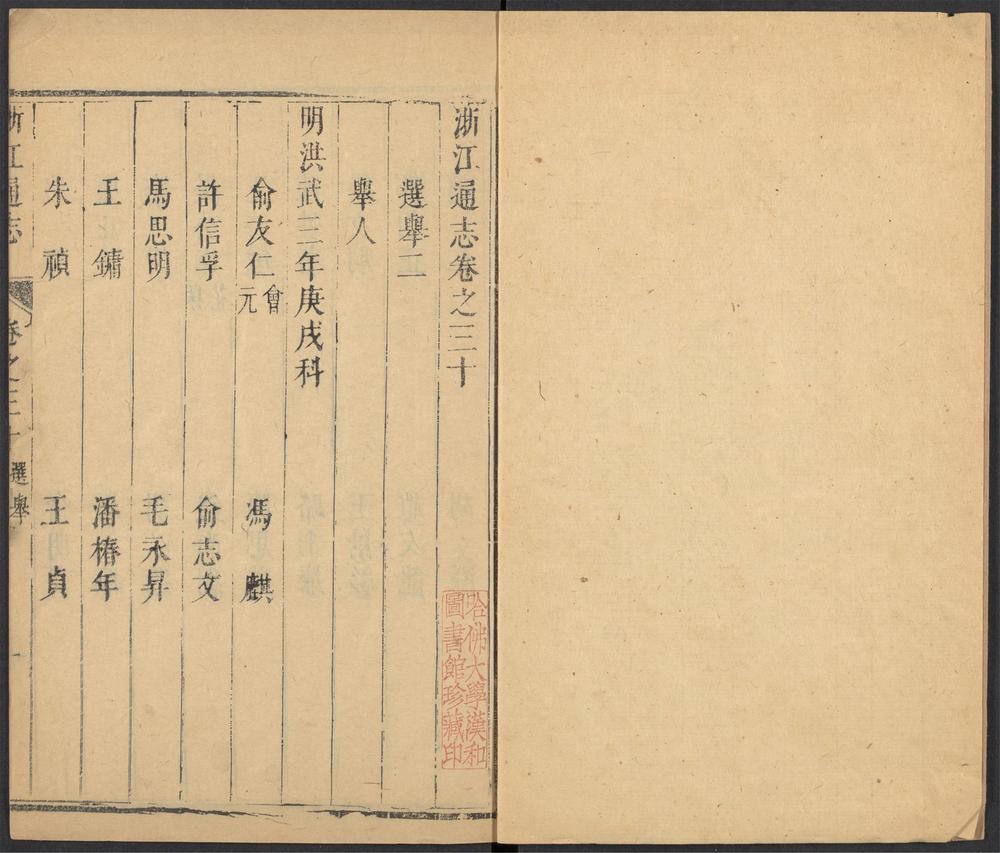 浙江通志卷之三十
選舉二
舉人
明洪武三年庚戌科
俞友仁會元
馮麒
許信孚
俞志文
馬思明
毛永昇
王鏞
潘椿年
朱禎
王貞
浙江通志
卷之三十
選舉
哈佛大學漢和
圖書館珍藏印